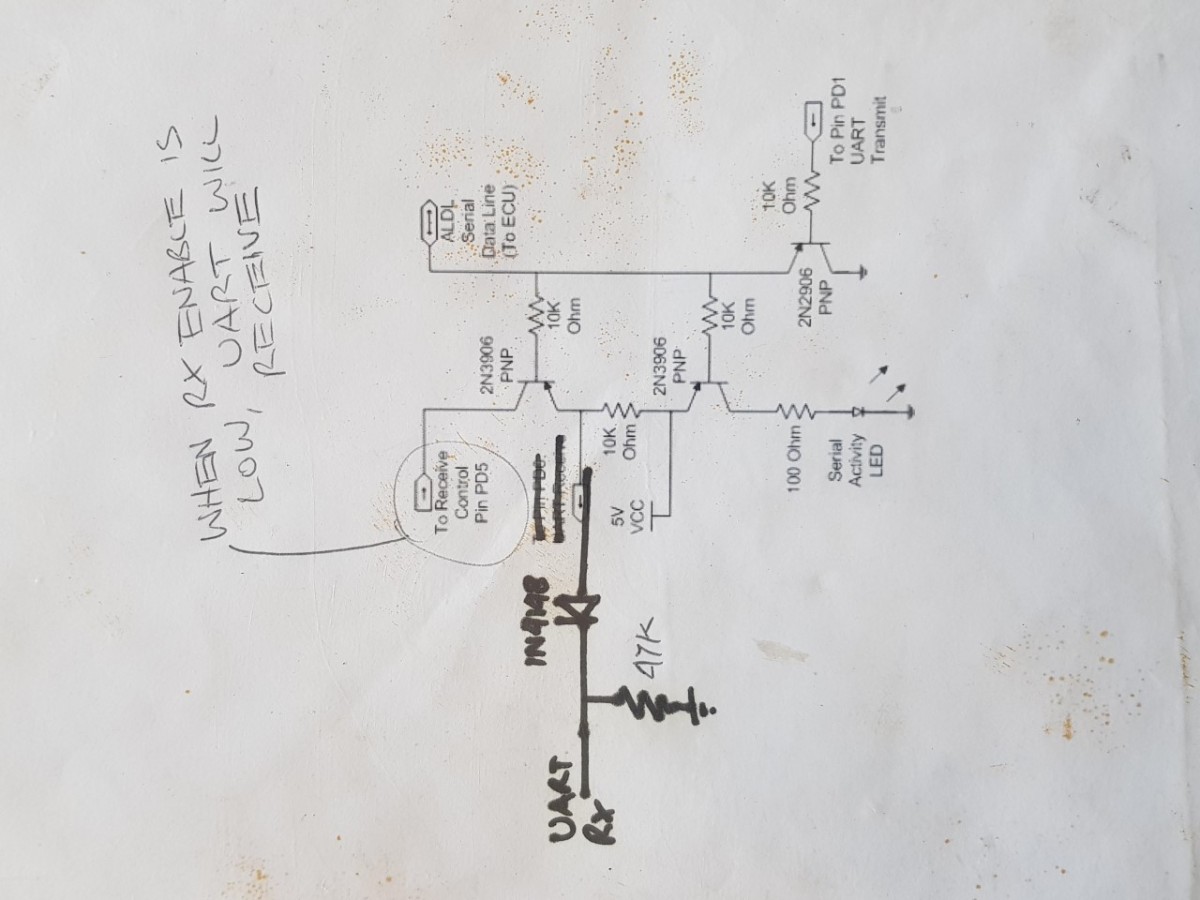 WHEN RX ENABLE IS
LOW, UART WILL
RECEIVE
To Receive
Control
Pin PD5
2N3906
PNP
ALDL
Serial
Data Line
(To ECU)
10K
Ohm
UART
RX
1N4148
47K
10K
Ohm
5V
VCC
2N3906
PNP
10K
Ohm
10K
Ohm
To Pin PD1
UART
Transmit
2N2906
PNP
100 Ohm
Serial
Activity
LED